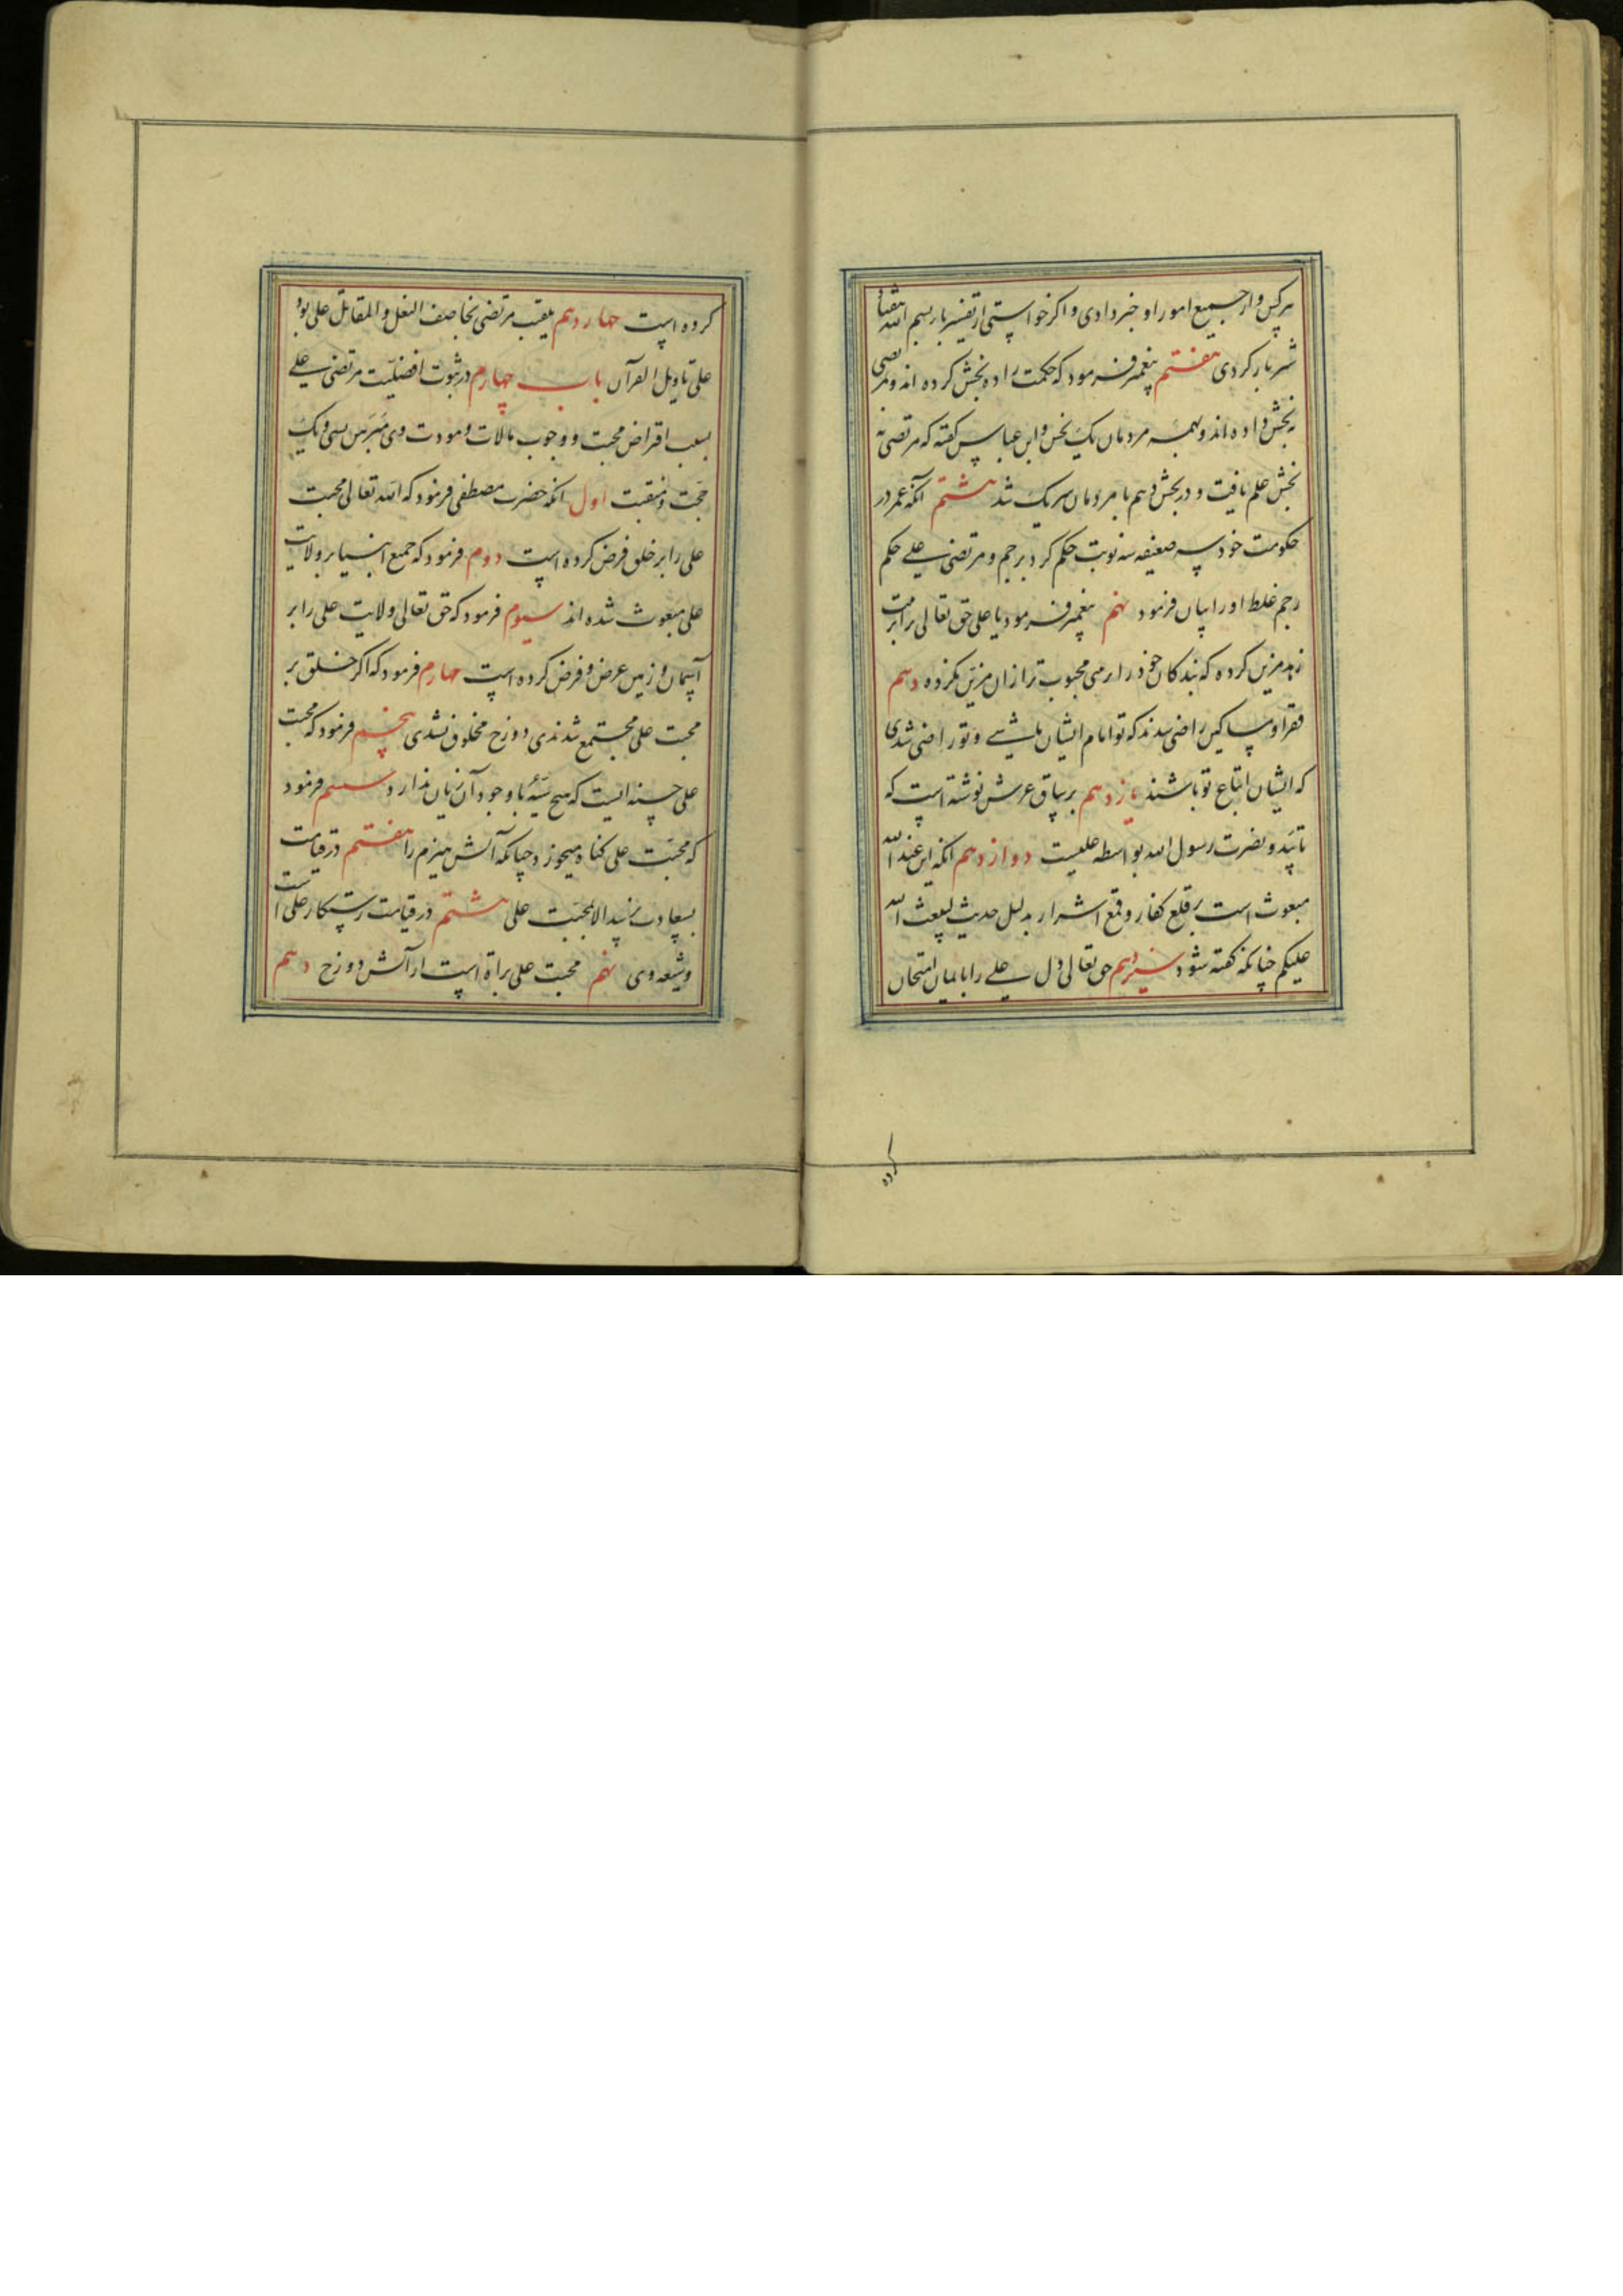 هرکس و از جمیع امور او خبر دادی و اگر خواستی از تفسیر باء بسم الله هفتاد
شتر بار کردی هفتم پیغمبر فرمود که حکمت را ده بخش کرده اند و مرتضی
نه بخش داده اند و همه مردمان یک بخش و ابن عباس گفته که مرتضی نه
بخش علم یافت و در بخش دهم با مردمان شریک شد هشتم آنکه عمر در
حکومت خود سه نوبت حکم کرد برجم و مرتضی علی حکم
رجم غلط او را بیان فرمود نهم پیغمبر فرمود یا علی حق تعالی ترا بزینت
زهد مزین کرده که بندکان خود را بامری محبوب تر از ان مزین نکرده دهم
فقرا و مساکین راضی شدند که تو امام ایشان باشی و تو راضی شدی
که ایشان اتباع تو باشند یازدهم بر ساق عرش نوشته است که
تائید و نصرت رسول الله بواسطه علیست دوازدهم آنکه از عند الله
مبعوث است بر قلع کفار و قمع اشرار بدلیل حدیث لیبعث الله
علیکم چنانکه گفته شود سیزدهم حق تعالی دل علی را بایمان امتحان
کرده
کرده است چهاردهم لقب مرتضی خاصف النعل و المقاتل علی بود
علی تاویل القرآن باب چهارم در ثبوت افضلیت مرتضی علی
بسبب افتراض محبت و وجوب موالات و مودت وی بسی و یک
حجت و منقبت اول آنکه حضرت مصطفی فرمود که الله تعالی محبت
علی را بر خلق فرض کرده است دوم فرمود که جمیع انبیا بر ولایت
علی مبعوث شده اند سیوم فرمود که حق تعالی ولایت علی را بر
آسمان و زمین عرض و فرض کرده است چهارم فرمود که اگر خلق بر
محبت علی مجتمع شدندی دوزخ مخلوق نشدی پنجم فرمود که محبت
علی حسنه ایست که هیچ سیئه با وجود آن زیان ندارد ششم فرمود
که محبت علی کناه میخورد چنانکه آتش هیزم را هفتم در قیامت
بسعادت نرسید الا بمحبت علی هشتم در قیامت رستکار علی است
و شیعه وی نهم محبت علی براة است از آتش دوزخ دهم